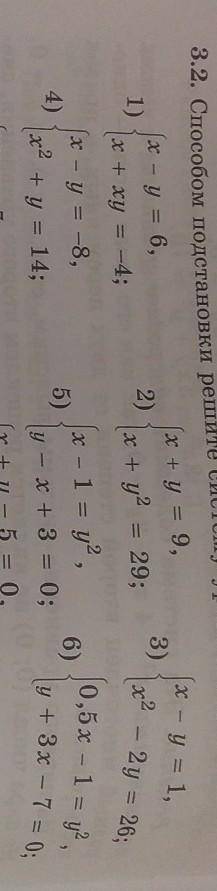 3.2. Способом подстановки решите систему
1) { x − y = 6,
x + xy = −4;
2) { x + y = 9,
x + y² = 29;
3) { x − y = 1,
x² − 2y = 26;
4) { x − y = −8,
x² + y = 14;
5) { x − 1 = y²,
y − x + 3 = 0;
6) { 0,5x − 1 = y²,
y + 3x − 7 = 0;
x + y − 5 = 0,